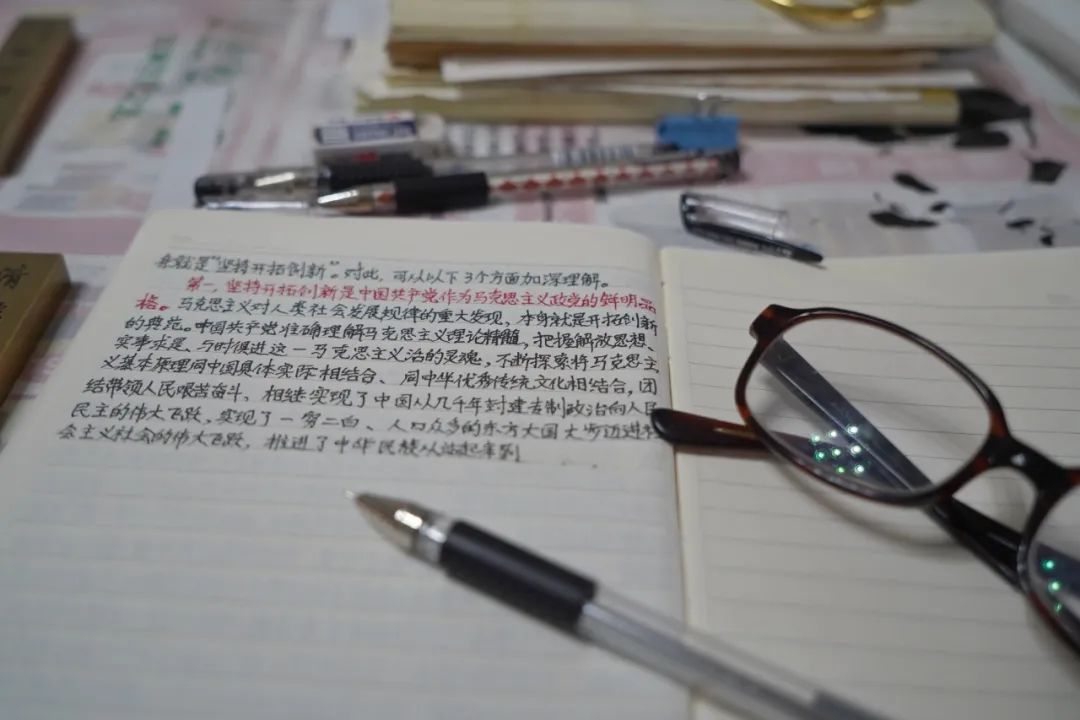 就是"坚持开拓创新"。对此，可从以下3个方面加深理解。
第一，坚持开拓创新是中国共产党作为马克思主义政党的鲜明品
格。马克思主义对人类社会发展规律的重大发现，本身就是开拓创新
的典范。中国共产党准确理解马克思主义理论精髓，把握解放思想、
实事求是、与时俱进这一马克思主义活的灵魂，不断探索将马克思主
义基本原理同中国具体实际相结合、同中华优秀传统文化相结合，团
结带领人民艰苦奋斗、相继实现了中国从几千年封建专制政治向人民
民主的伟大飞跃，实现了一穷二白、人口众多的东方大国大步迈进社
会主义社会的伟大飞跃，推进了中华民族从站起来到